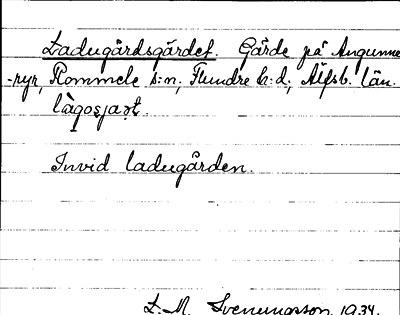 Ladugårdsgärdet. Gärde på Angunne
-ryr, Rommele s:n, Flundre h:d, Älfsb. län.
làgo̱sja̱ṛt.
Invid ladugården.
L. M. Svenungsson. 1934.